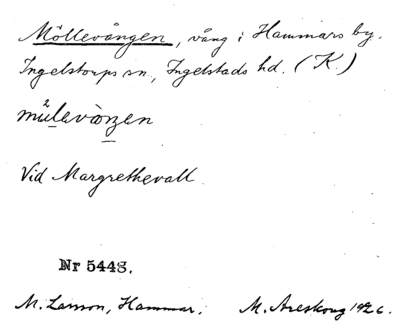 Möllevången, vång i Hammars by.
Ingelstorps sn, Ingelstads hd. (K.)
Vid Margrethevall.
Nr 5448.
M. Larsson, Hammar. M. Areskoug 1926.